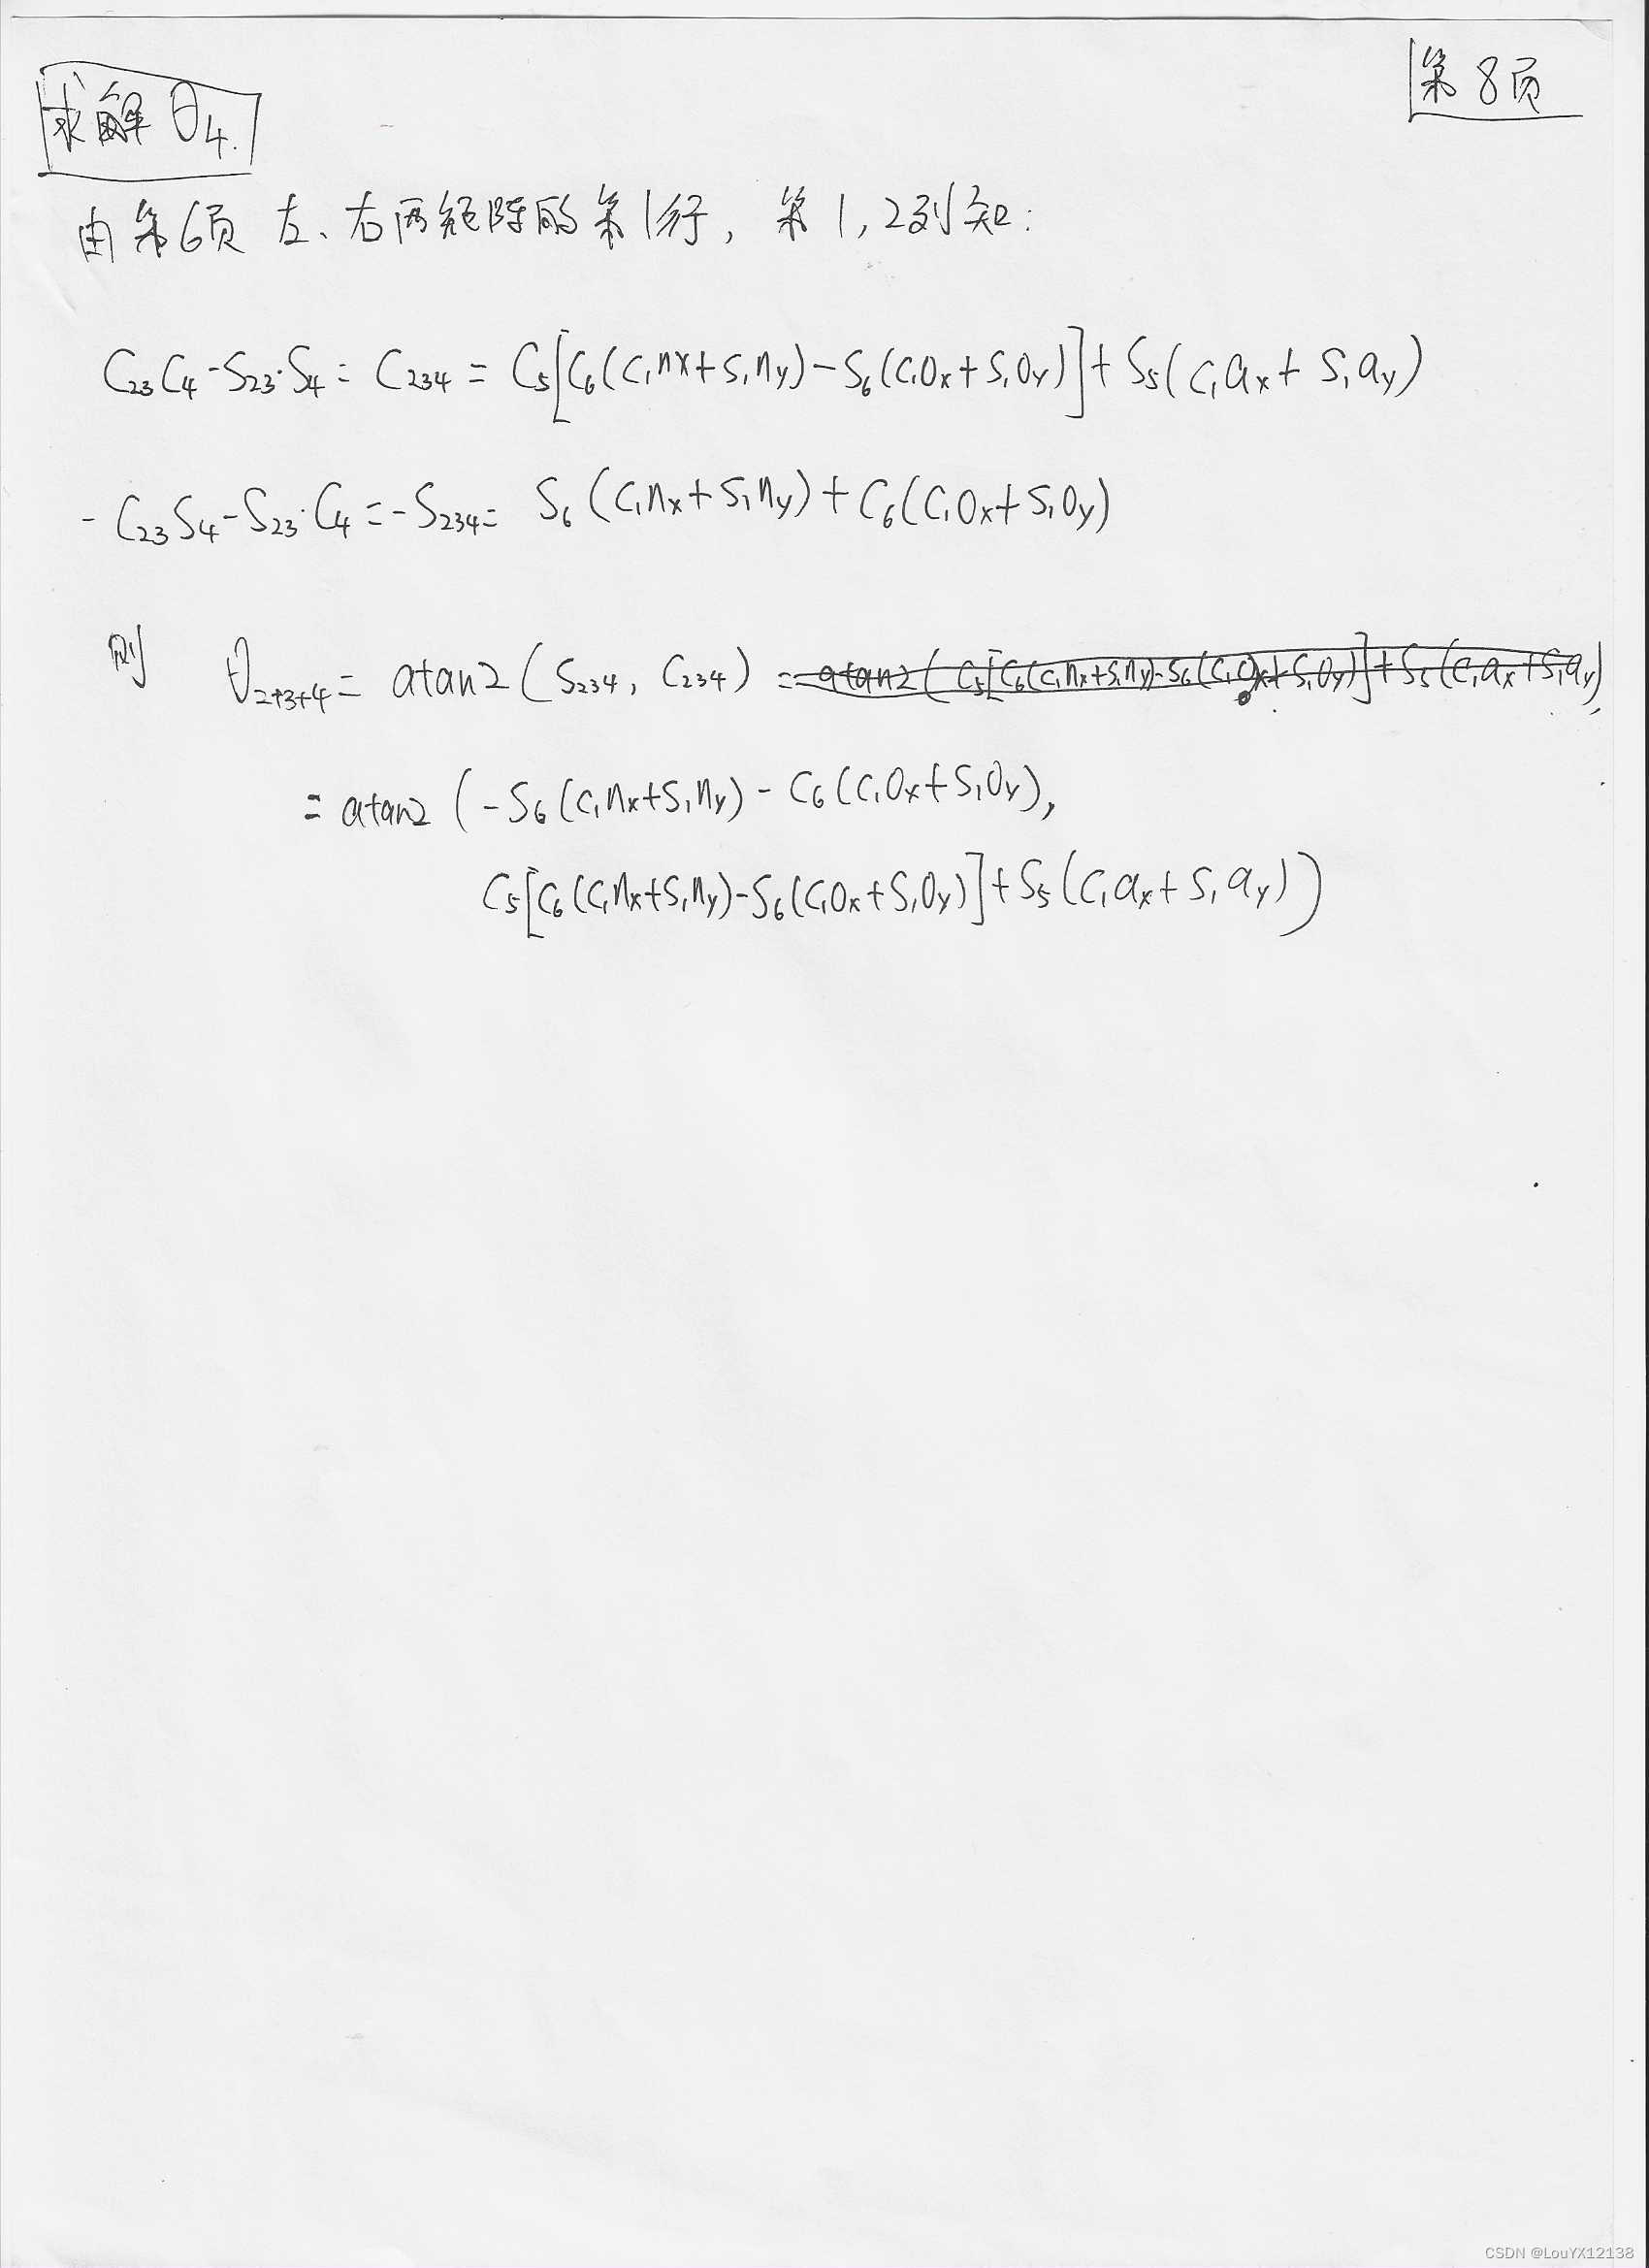 第8页
求解 θ₄.
由第6页 左、右两矩阵的第1行，第1,2列知：
C₂₃C₄-S₂₃·S₄ = C₂₃₄ = C₅[C₆(C₁nx+S₁ny)-S₆(C₁Ox+S₁Oy)]+S₅(C₁ax+S₁ay)
-C₂₃S₄-S₂₃·C₄=-S₂₃₄= S₆(C₁nx+S₁ny)+C₆(C₁Ox+S₁Oy)
则 θ₂₊₃₊₄= atan2(S₂₃₄, C₂₃₄) = atan2(C₅[C₆(C₁nx+S₁ny)-S₆(C₁Ox+S₁Oy)]+S₅(C₁ax+S₁ay),
= atan2(-S₆(C₁nx+S₁ny)-C₆(C₁Ox+S₁Oy),
C₅[C₆(C₁nx+S₁ny)-S₆(C₁Ox+S₁Oy)]+S₅(C₁ax+S₁ay))
CSDN @LouYX12138